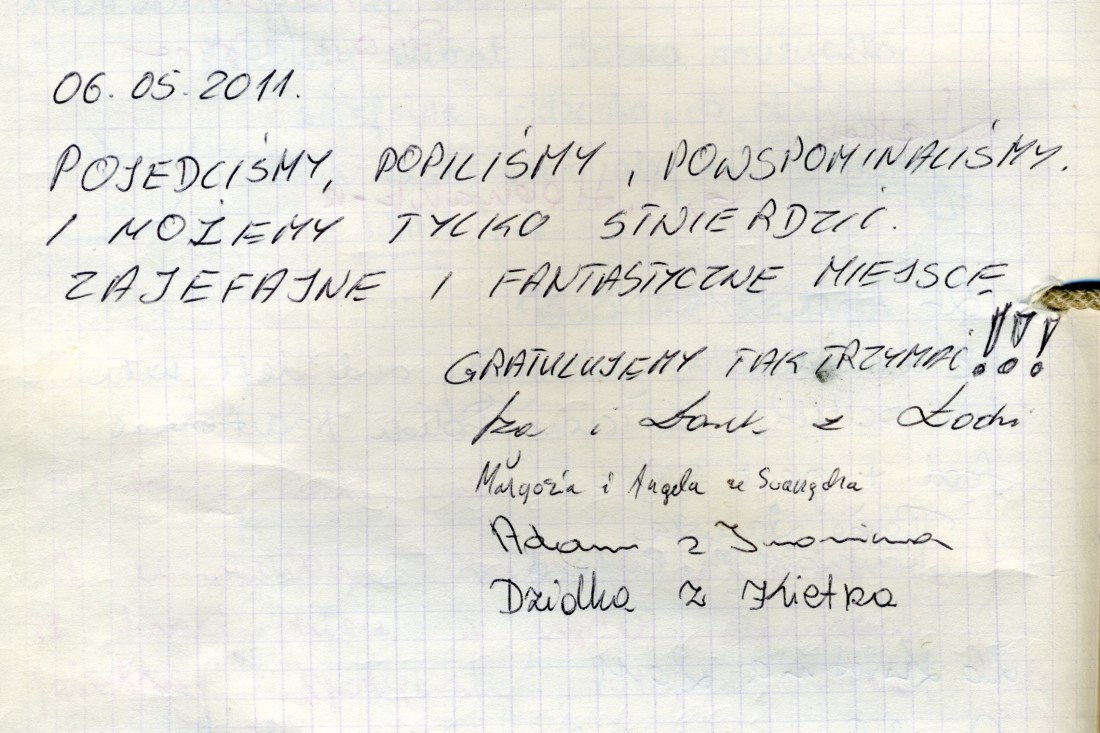 06.05.2011.
POJEDLIŚMY, POPILIŚMY, POWSPOMINALIŚMY.
I MOŻEMY TYLKO STWIERDZIĆ.
ZAJEFAJNE I FANTASTYCZNE MIEJSCE
GRATULUJEMY TAK TRZYMAĆ!!!
Iza i Darek z Łodzi
Małgosia i Angela ze
Adam z
Dzidka z